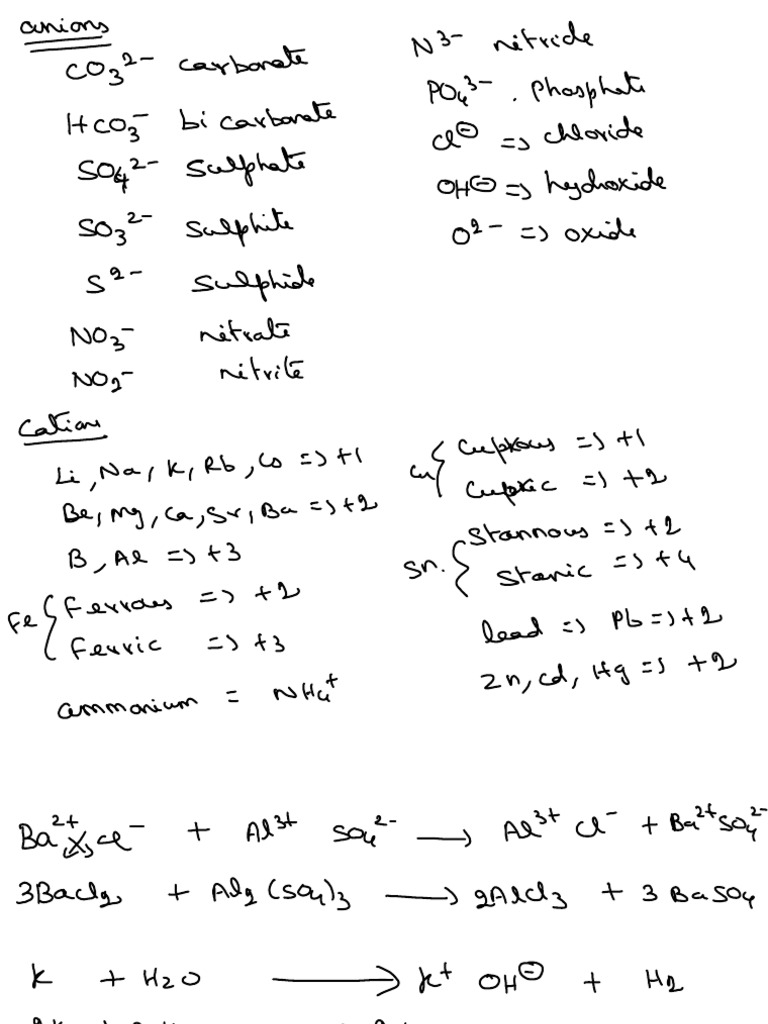 anions
CO₃²⁻ carbonate
HCO₃⁻ bi carbonate
SO₄²⁻ sulphate
SO₃²⁻ sulphite
S²⁻ sulphide
NO₃⁻ nitrate
NO₂⁻ nitrite
N³⁻ nitride
PO₄³⁻ . Phosphate
Cl⊖ => chloride
OH⊖ => hydroxide
O²⁻ => oxide
Cations
Li, Na, K, Rb, Cs => +1
Be, Mg, Ca, Sr, Ba => +2
B, Al => +3
Fe { Ferrous => +2
Ferric => +3
ammonium = NH₄⁺
Cu { Cuprous => +1
Cupric => +2
Sn. { Stannous => +2
Stanic => +4
lead => Pb => +2
Zn, Cd, Hg => +2
Ba²⁺ Cl⁻ + Al³⁺ SO₄²⁻ → Al³⁺ Cl⁻ + Ba²⁺ SO₄²⁻
3BaCl₂ + Al₂(SO₄)₃ → 2AlCl₃ + 3BaSO₄
K + H₂O → K⁺ OH⊖ + H₂